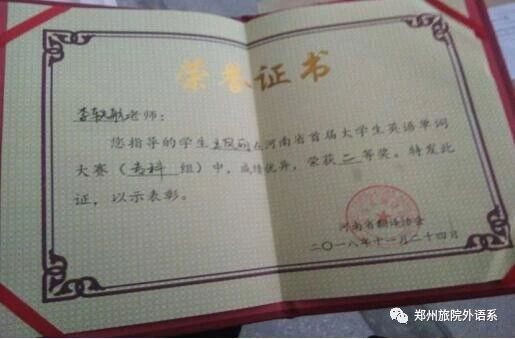 荣誉证书
李轶航老师：
您指导的学生 在河南省首届大学生英语单词
大赛（专科 组）中，成绩优异，荣获二等奖。特发此
证，以示表彰。
河南省翻译协会
二〇一八年十一月二十四日
郑州旅院外语系